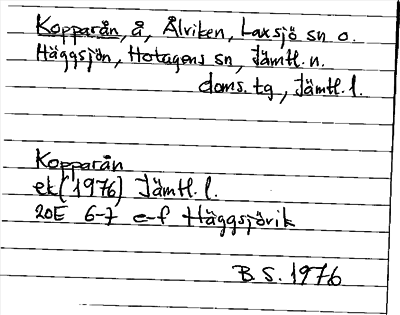 Kopparån, å, Ålviken, Laxsjö sn o.
Häggsjön, Hotagens sn, Jämtl. n.
doms. tg, Jämtl. l.
Kopparån
ek (1976) Jämtl. l.
20E 6-7 e-f Häggsjövik
B.S. 1976